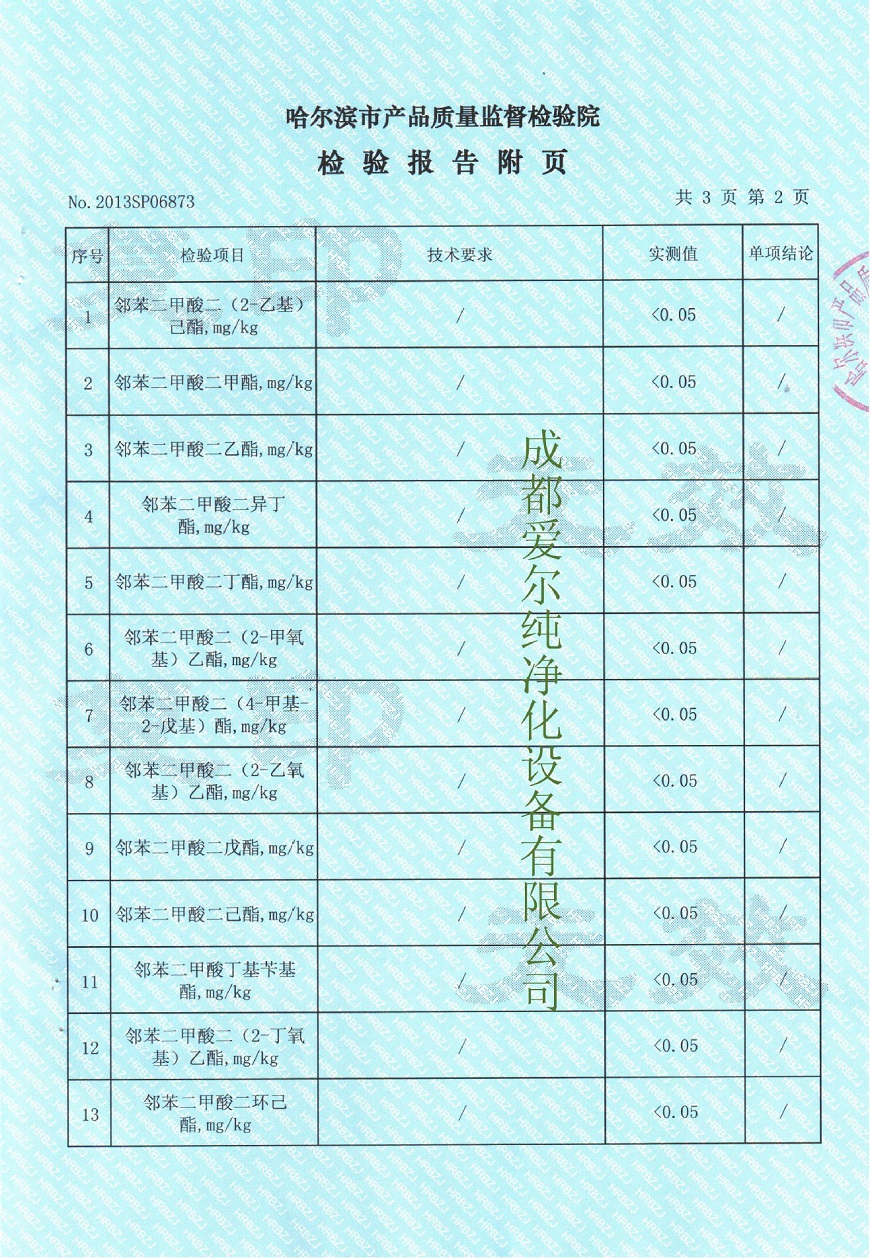 哈尔滨市产品质量监督检验院
检验报告附页
No.2013SP06873
共 3 页 第 2 页
序号 检验项目 技术要求 实测值 单项结论
1 邻苯二甲酸二（2-乙基） / <0.05 /
己酯,mg/kg
2 邻苯二甲酸二甲酯,mg/kg / <0.05 /
3 邻苯二甲酸二乙酯,mg/kg / <0.05 /
4 邻苯二甲酸二异丁 / <0.05 /
酯,mg/kg
5 邻苯二甲酸二丁酯,mg/kg / <0.05 /
6 邻苯二甲酸二（2-甲氧 / <0.05 /
基）乙酯,mg/kg
7 邻苯二甲酸二（4-甲基- / <0.05 /
2-戊基）酯,mg/kg
8 邻苯二甲酸二（2-乙氧 / <0.05 /
基）乙酯,mg/kg
9 邻苯二甲酸二戊酯,mg/kg / <0.05 /
10 邻苯二甲酸二己酯,mg/kg / <0.05 /
11 邻苯二甲酸丁基苄基 / <0.05 /
酯,mg/kg
12 邻苯二甲酸二（2-丁氧 / <0.05 /
基）乙酯,mg/kg
13 邻苯二甲酸二环己 / <0.05 /
酯,mg/kg
成都爱尔纯净化设备有限公司
哈尔滨市产品质